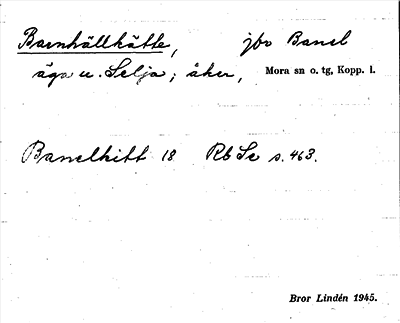 Barnhällkätte, jfr Banel
äga u. Selja; åker, Mora sn o. tg, Kopp. l.
Banelkitt 18 Rb Se s. 463.
Bror Lindén 1945.